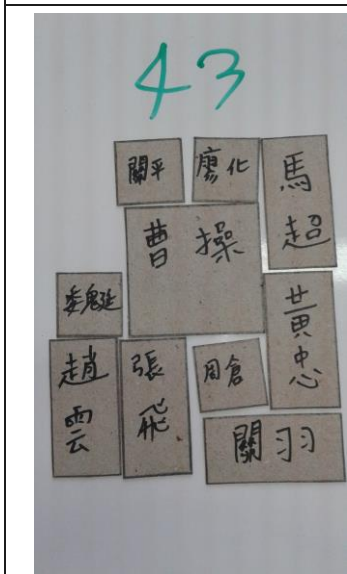 43
關平
廖化
馬超
曹操
魏延
黃忠
趙雲
張飛
周倉
關羽